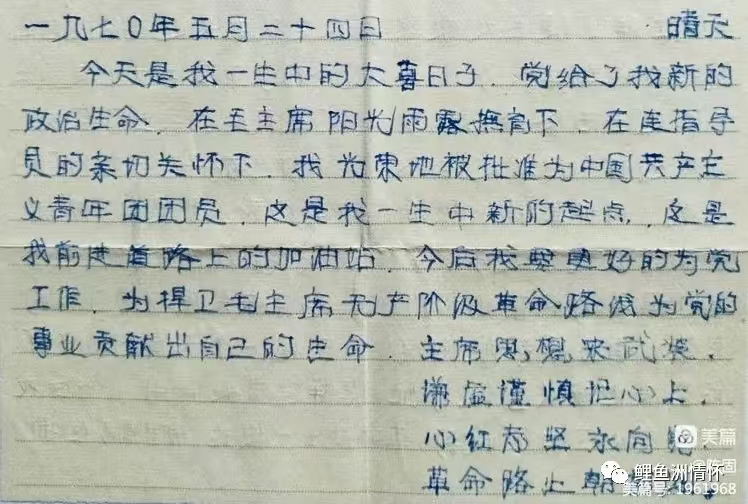 一九七〇年五月二十四日 晴天
今天是我一生中的大喜日子．党给了我新的
政治生命．在毛主席阳光雨露撫育下．在连指导
员的亲切关怀下．我光荣地被批准为中国共产主
义青年团团员．这是我一生中新的起点．这是
我前进道路上的加油站．今后我要更好的为党
工作．为捍卫毛主席无产阶级革命路线为党的
事业贡献出自己的生命．主席思想来武装．
谦虚谨慎记心上．
心红志坚永向
革命路上朝
美篇
@陈固
鲤鱼洲情怀
美篇号:1961968